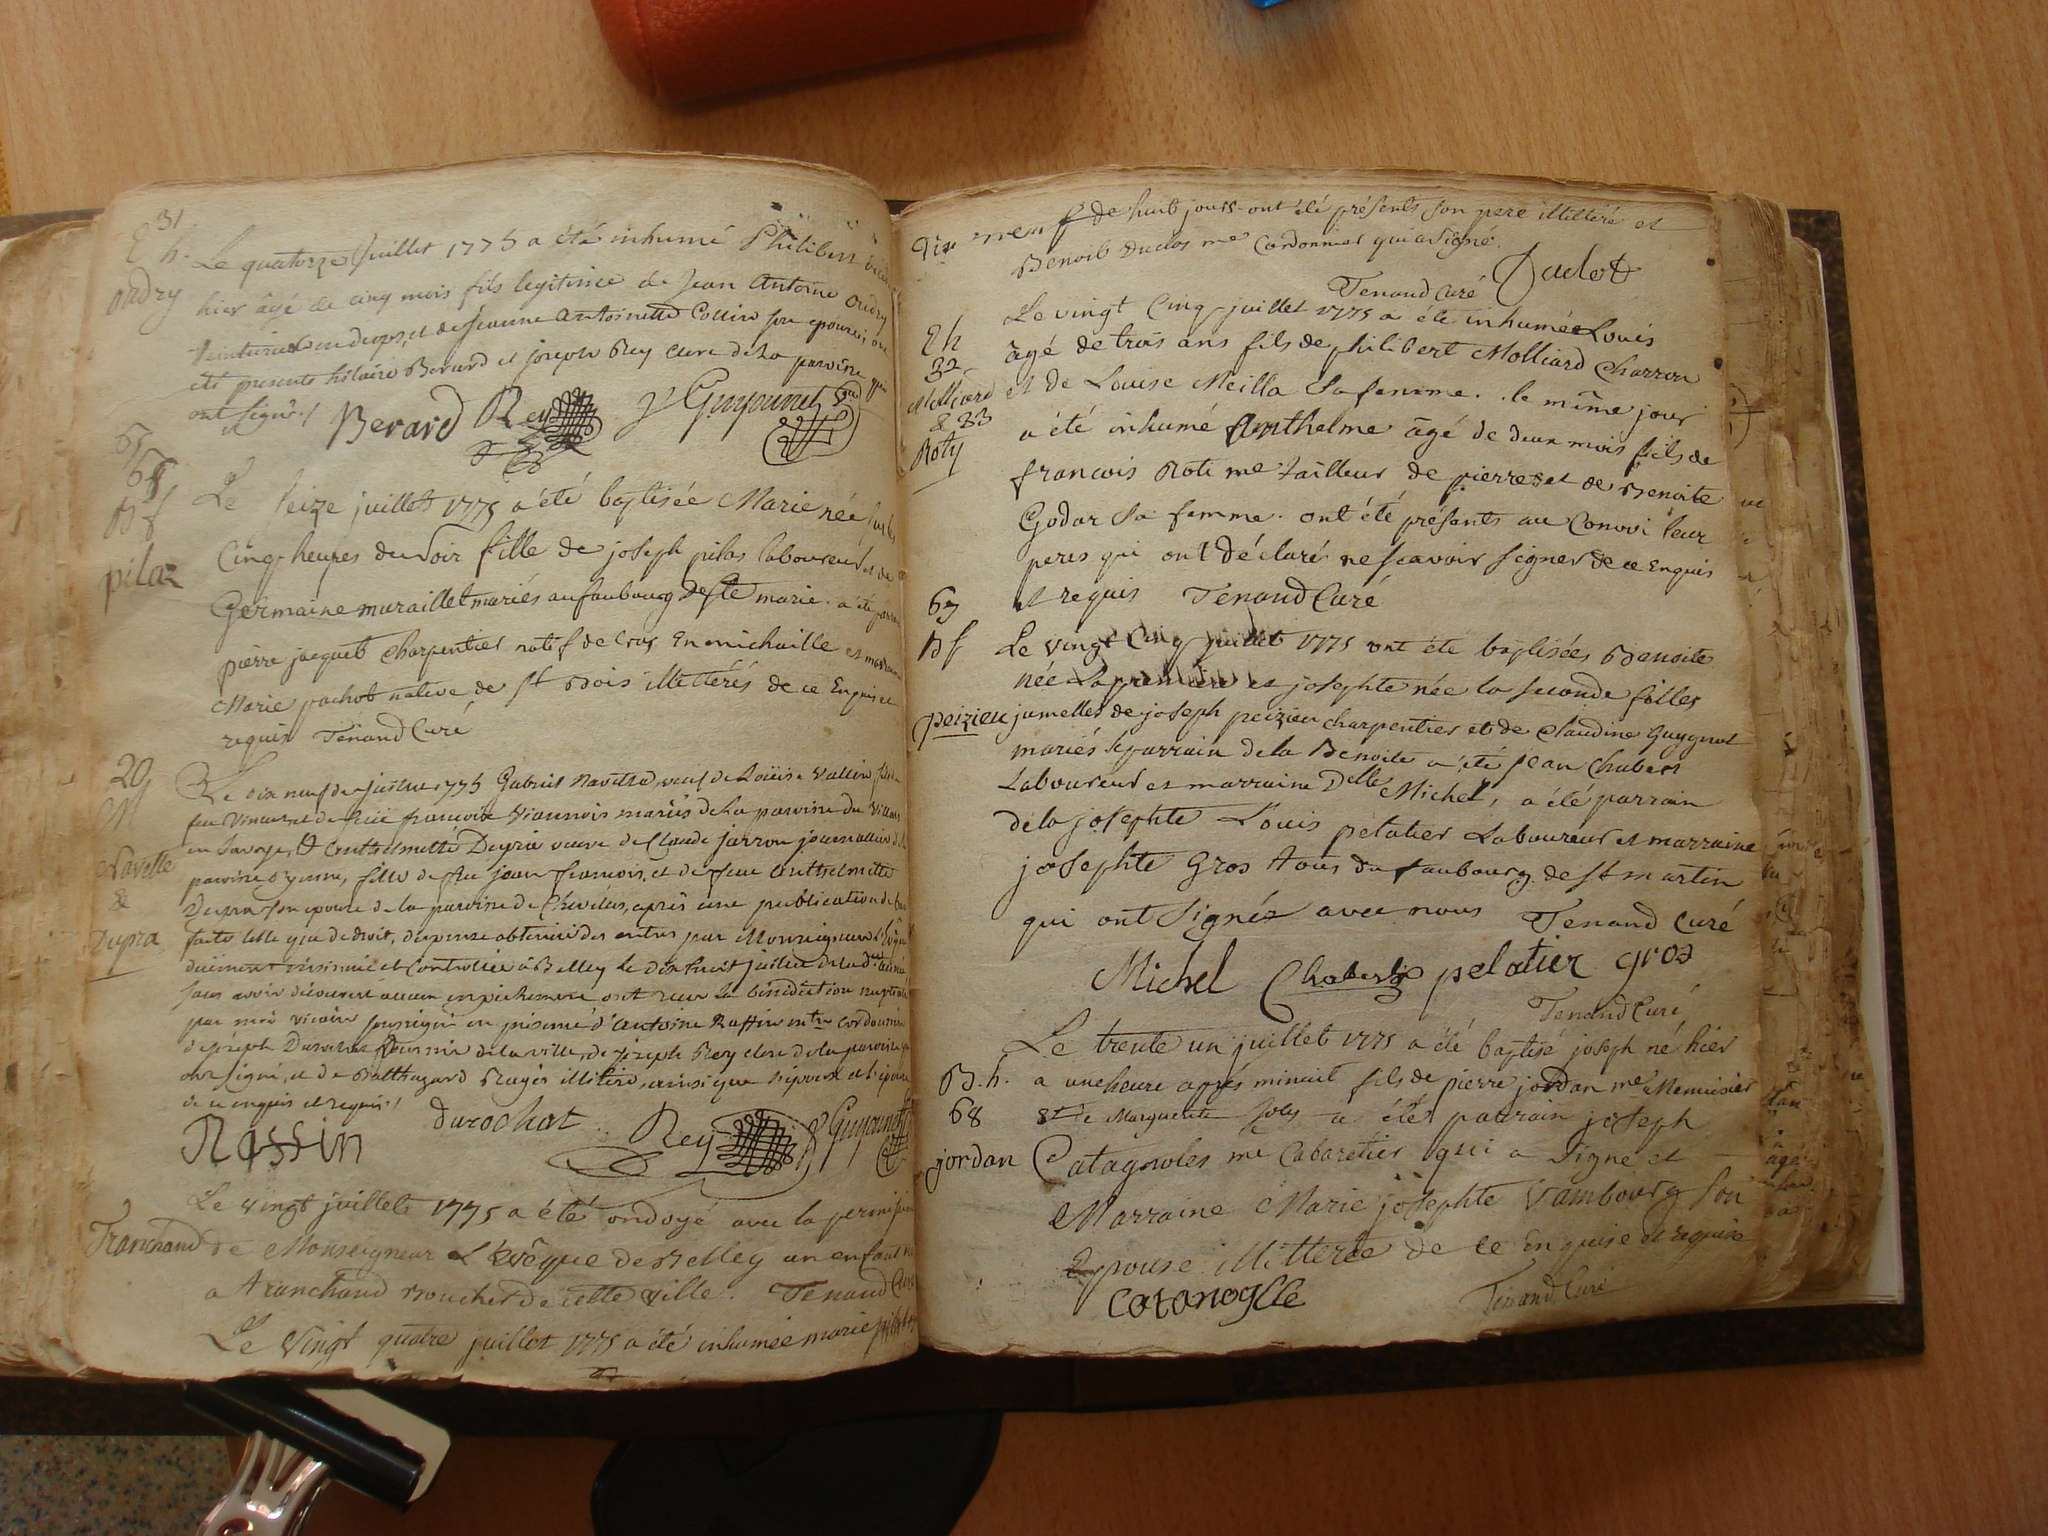 31
E h.
oudry
Le quatorze Juillet 1775 a été inhumé Philibert
hier âgé de cinq mois fils legitime de Jean Antoine oudry
et de Jeanne Antoinette Collin son epouse, on
été presents hilaire Berard et joseph Rey clerc de La paroisse qui
ont signé./
Berard Rey Guyounet
65
B f
pilaz
Le seize juillet 1775 a été baptisée Marie née
Cinq heures du Soir fille de joseph pilas laboureur et de
Germaine muraillet mariés au faubourg de Ste marie. a été
pierre jacquet charpentier natif de En michaille et
Marie pachot native de St Bois illitterés de ce Enquis et
requis Tenand Curé
20
M
Navette
&
Depra
Le dix neuf de juillet 1775 Gabriel veuf de Loüise Vallin
feu Vincent et de mariés de La paroisse du
en Savoye, & Anthelmette Depra veuve de Claude journallier de
paroisse fille de feu jean francois, et de feue Anthelmette
Depra son epouse de la paroisse de après une publication
faite telle que de droit, dispense obtenüe des autres par Monseigneur
duëment insinuée et Controllée à Belley le dix huit juillet de la
sans avoir découvert aucun empéchement ont reçu la bénédiction nuptiale
par moi vicaire soussigné en présence d'Antoine Raffin mtre Cordonnier
de joseph de la ville, de joseph Rey clerc de la paroisse
ont signé, et de Balthazard illitéré, ainsi que l'epoux et l'epouse
de ce enquis et requis./
Rassin durochat Rey Guyounet
Tranchand
Le vingt juillet 1775 a été ondoyé avec la permission
de Monseigneur L'Evêque de Belley un enfant
a tranchand Boucher de cette ville. Tenand Curé
Le Vingt quatre juillet 1775 a été inhumée marie
de huit jours. ont été présents son pere illitéré et
Benoit duclos me Cordonnier qui a signé.
Tenand Curé
Eh
32
Molliard
& 33
Roty
Le vingt Cinq juillet 1775 a été inhumée Louis
âgé de trois ans fils de philibert Molliard Charron
et de Louise Meilla Sa femme. le même jour
a été inhumé Anthelme âgé de deux mois fils de
francois Roti me tailleur de pierres et de Benoite
Godar Sa femme. ont été présents au Convoi leur
peres qui ont déclaré ne scavoir signer de ce Enquis
et requis Tenand Curé
67
B f
peizieu
Le vingt Cinq juillet 1775 ont été baptisées Benoite
née La premiere et josephte née la seconde filles
jumelles de joseph peizieu charpentier et de Claudine Guygnot
mariés le parrain de la Benoite a été jean Chabert
Laboureur et marraine Delle Michel, a été parrain
de la josephte Louis pelatier Laboureur et marraine
josephte Gros tous du faubourg de St martin
qui ont Signéz avec nous Tenand Curé
Michel Chabert pelatier gros
Tenand Curé
B. h.
68
jordan
Le trente un juillet 1775 a été baptisé joseph né hier
a une heure après minuit fils de pierre jordan me Menuisier
et de Marguerite Joly a été parrain joseph
Catagnoles me Cabaretier qui a signé et
Marraine Marie josephte Vambourg Son
Epouse illitterée de ce Enquise et requise
Catanoglle
Tenand Curé